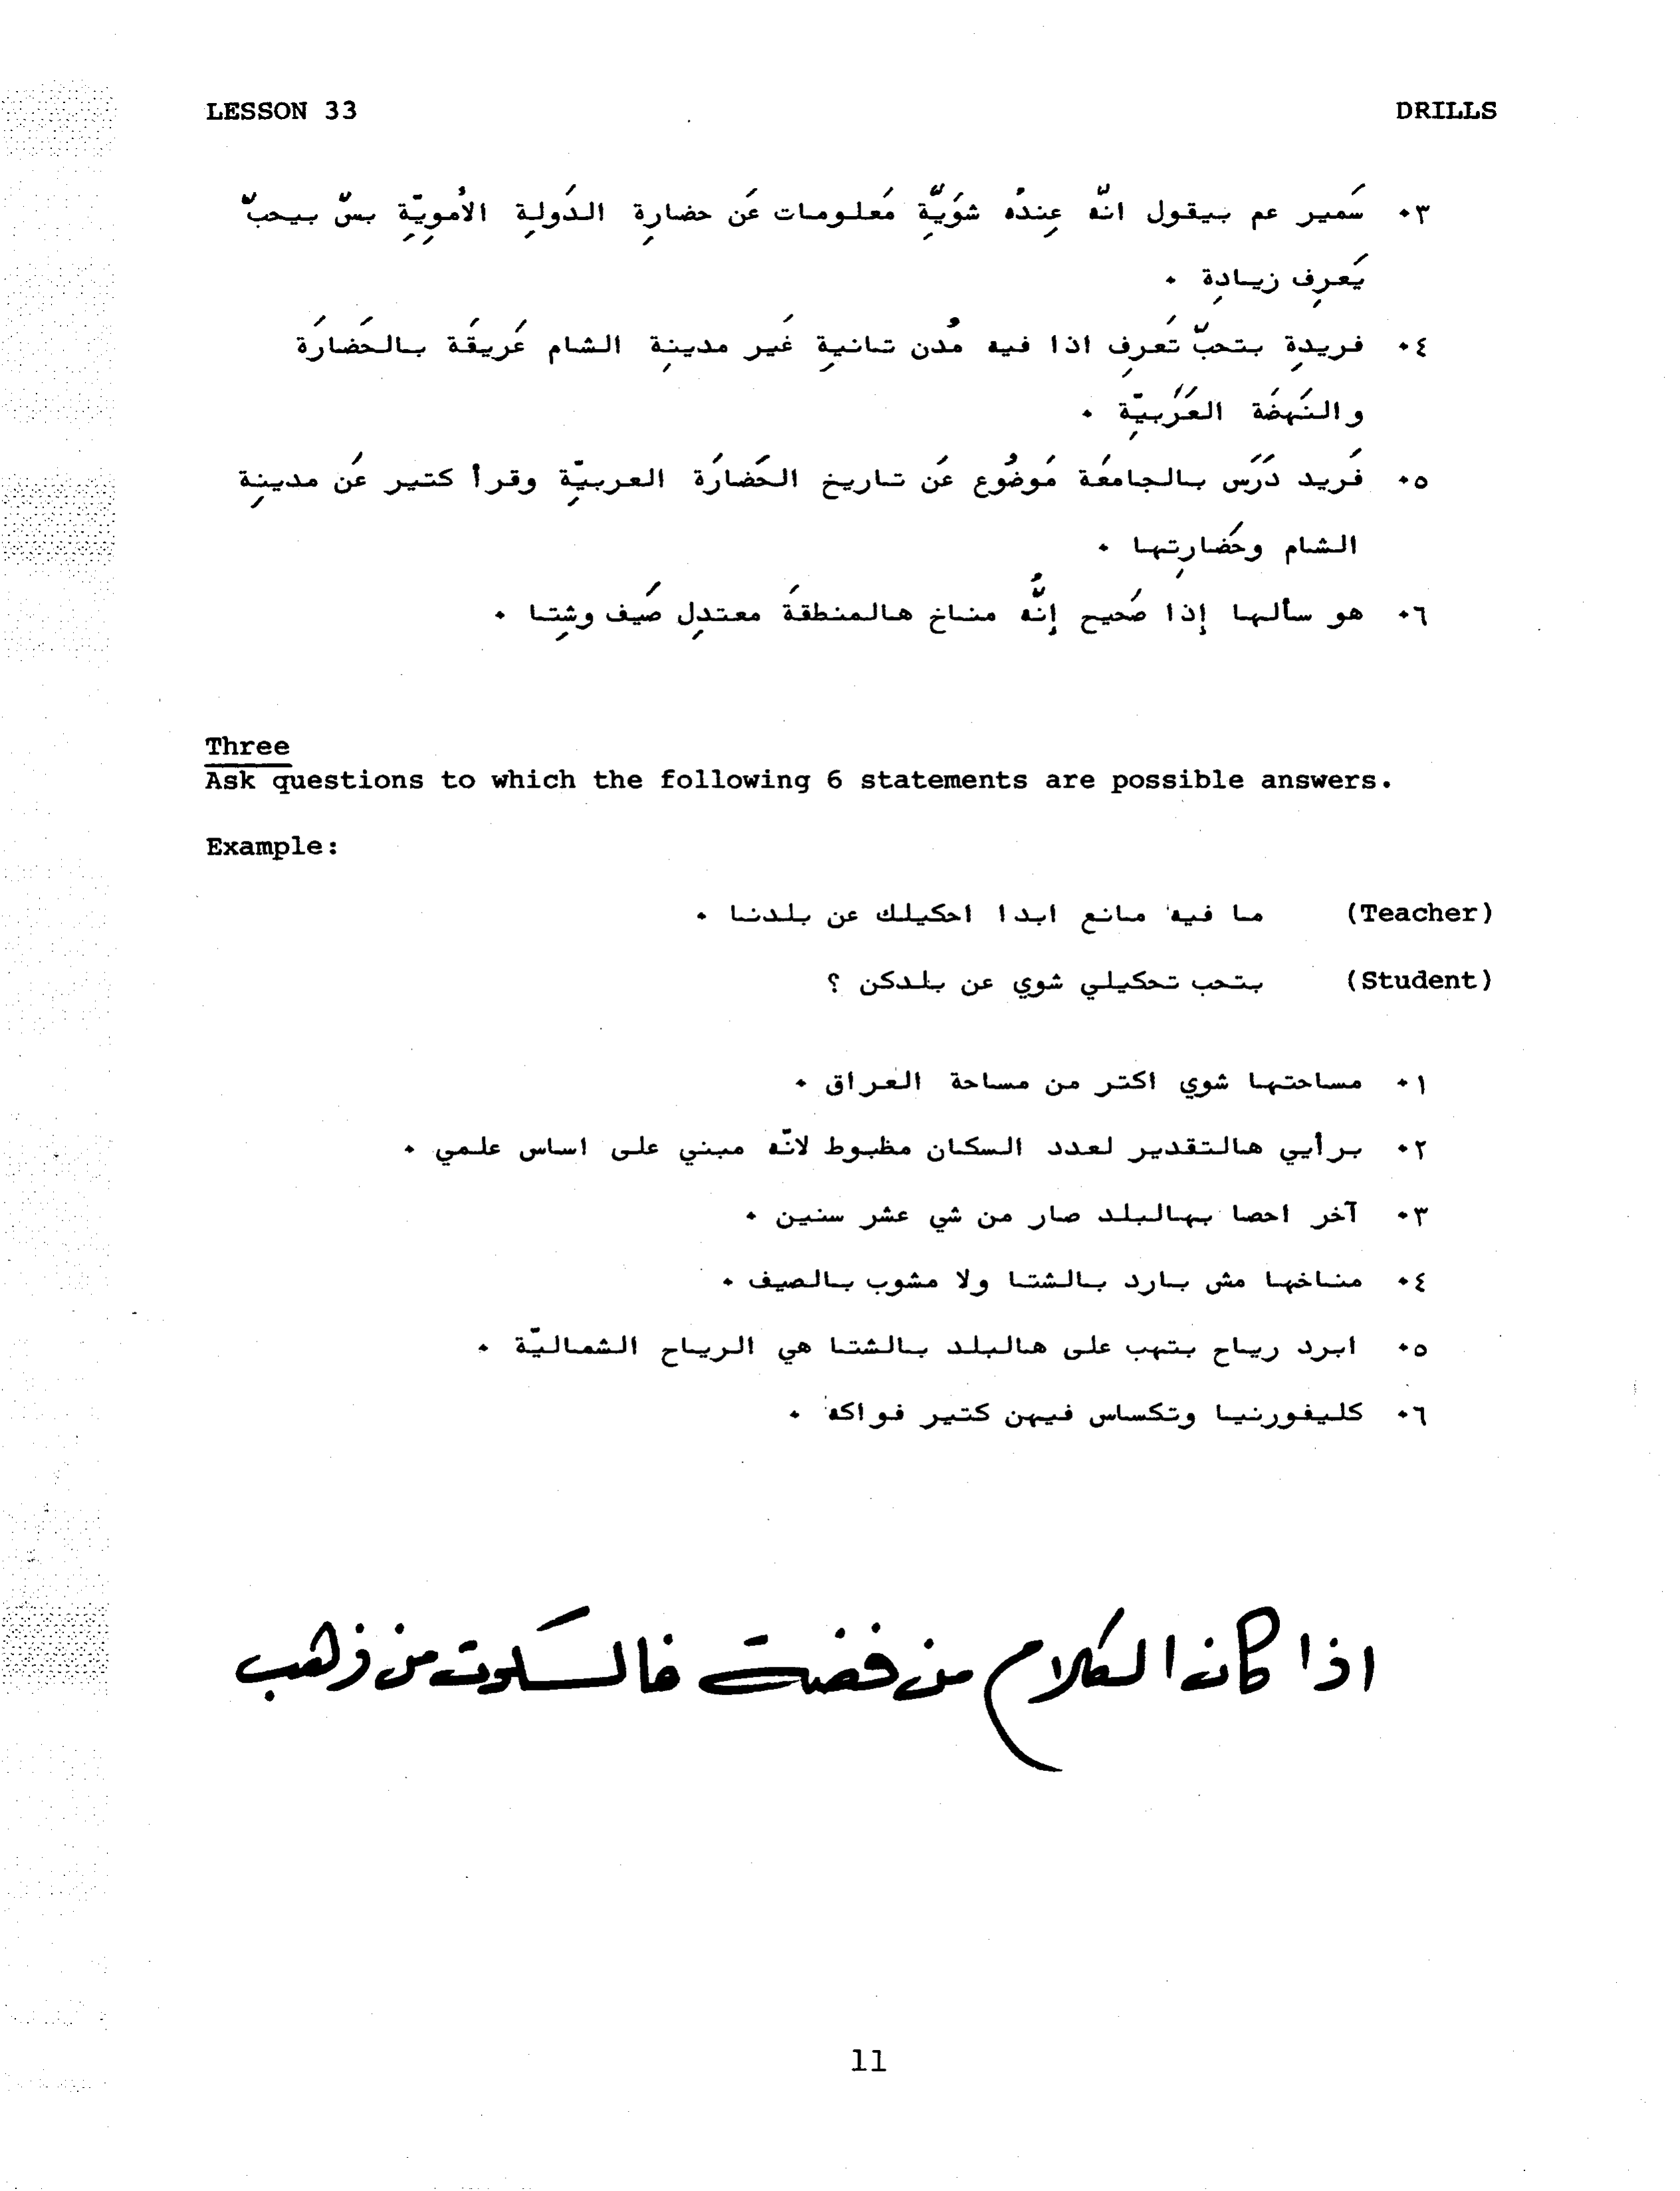 LESSON 33
DRILLS
٣٠ سَمير عم بيقول انّه عِندُه شوَيّةِ مَعلومات عَن حضارةِ الدَولةِ الأمويّةِ بسّ بيحبّ
يَعرِف زيادةِ ٠
٤٠ فريدةِ بتحبّ تَعرِف اذا فيه مُدن تانيةِ غَير مدينةِ الشام عَريقَة بالحَضارَة
والنَهضَة العَرَبيّة ٠
٥٠ فَريد دَرَس بالجامعَة مَوضُوع عَن تاريخ الحَضارَة العربيّة وقرأ كتير عَن مدينةِ
الشام وحَضارِتها ٠
٦٠ هو سألها إذا صَحيح إنُّه مناخ هالمنطقَة معتدِل صَيف وشِتا ٠
Three
Ask questions to which the following 6 statements are possible answers.
Example:
(Teacher) ما فيه مانع ابدا احكيلك عن بلدنا ٠
(Student) بتحب تحكيلي شوي عن بلدكن ؟
١٠ مساحتها شوي اكتر من مساحة العراق ٠
٢٠ برأيي هالتقدير لعدد السكان مظبوط لانّه مبني على اساس علمي ٠
٣٠ آخر احصا بهالبلد صار من شي عشر سنين ٠
٤٠ مناخها مش بارد بالشتا ولا مشوب بالصيف ٠
٥٠ ابرد رياح بتهب على هالبلد بالشتا هي الرياح الشماليّة ٠
٦٠ كليفورنيا وتكساس فيهن كتير فواكه ٠
اذا كان الكلام من فضة فالسكوت من ذهب
11